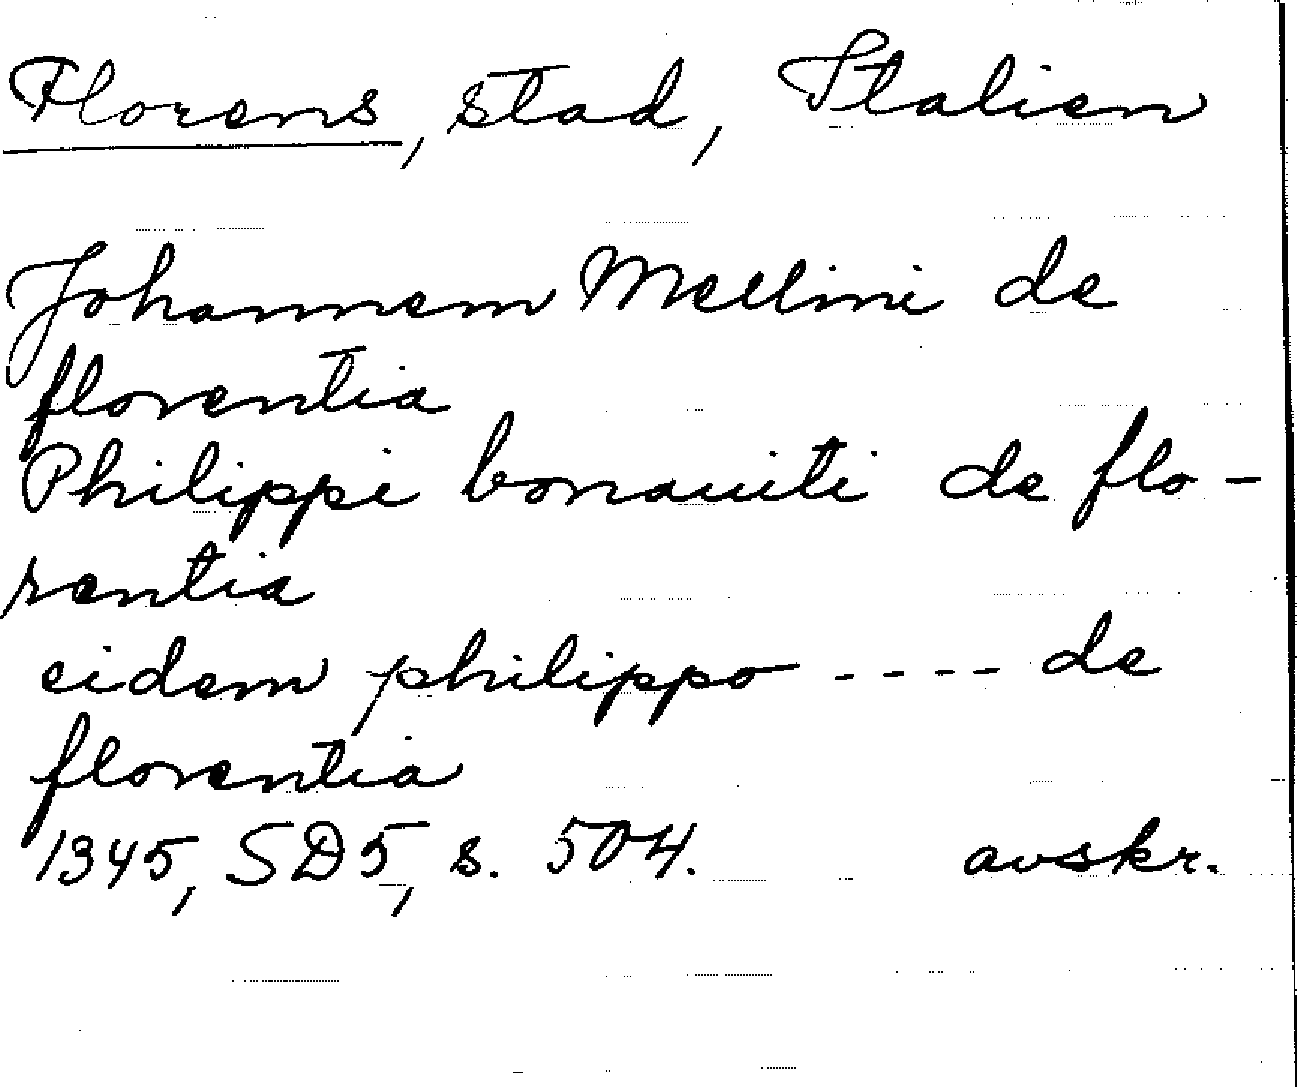 Florens, stad, Italien
Johannem Mellini de
florentia
Philippi bonauiti de flo-
rentia
eidem philippo ---- de
florentia
1345, SD5, s. 504. avskr.